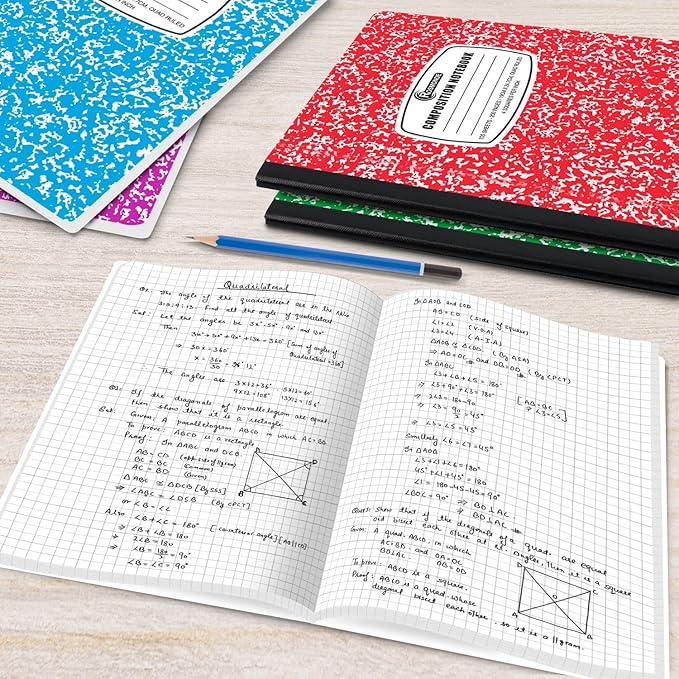 COMPOSITION NOTEBOOK
100 SHEETS • 200 PAGES
QUAD RULED
Quadrilateral
The angle of the quadrilateral are in the ratio
3:5:9:13. Find all the angle of quadrilateral
Sol: Let the angles be 3x°, 5x°, 9x° and 13x°
Then
3x°+5x°+9x°+13x = 360° [Sum of angles of
Quadrilateral = 360]
⇒ 30x = 360°
x = 360/30 = 12°
The angles are 3×12=36° 5×12=60°
9×12=108° 13×12=156°
If the diagonals of parallelogram are equal
then show that it is a rectangle.
Sol: Given: A parallelogram ABCD in which AC = BD
To prove: ABCD is a rectangle
Proof: In ΔABC and DCB
AB = CD (opp sides of llgram)
BC = BC (Common)
AC = BD (Given)
ΔABC ≅ ΔDCB [By SSS]
⇒ ∠ABC = ∠DCB (By CPCT)
or ∠B = ∠C
Also ∠B + ∠C = 180° [co interior angle] [AB||CD]
⇒ ∠B + ∠B = 180°
⇒ 2∠B = 180°
⇒ ∠B = 180/2 = 90°
∠B = ∠C = 90°
A
D
B
C
In ΔAOB and COD
AB = CD (side of square)
∠1 = ∠2 (V.O.A)
∠3 = ∠4 (A.I.A)
ΔAOB ≅ ΔCOD (By ASA)
⇒ AO = OC and OB = OD (By CPCT)
In ΔABC
∠3 + ∠B + ∠5 = 180°
⇒ ∠3 + 90° + ∠3 = 180° [AB = BC
⇒ ∠3 = ∠5]
⇒ 2∠3 = 180 - 90
⇒ ∠3 = 90/2 = 45°
⇒ ∠3 = ∠5 = 45°
Similarly ∠6 = ∠7 = 45°
In ΔAOB
∠3 + ∠1 + ∠6 = 180°
45° + ∠1 + 45° = 180°
∠1 = 180 - 45 - 45 = 90°
∠BOC = 90° ⇒ BO ⊥ AC
⇒ BD ⊥ AC
Show that if the diagonals of a quad. are equal
and bisect each other at rt. angles, then it is a square
Given: A quad. ABCD, in which
AC = BD and OA = OC
BD ⊥ AC OB = OD
To prove: ABCD is a square.
Proof: ABCD is a quad. whose
diagonal bisect each other, so it is a llgram.
D
C
O
A
B